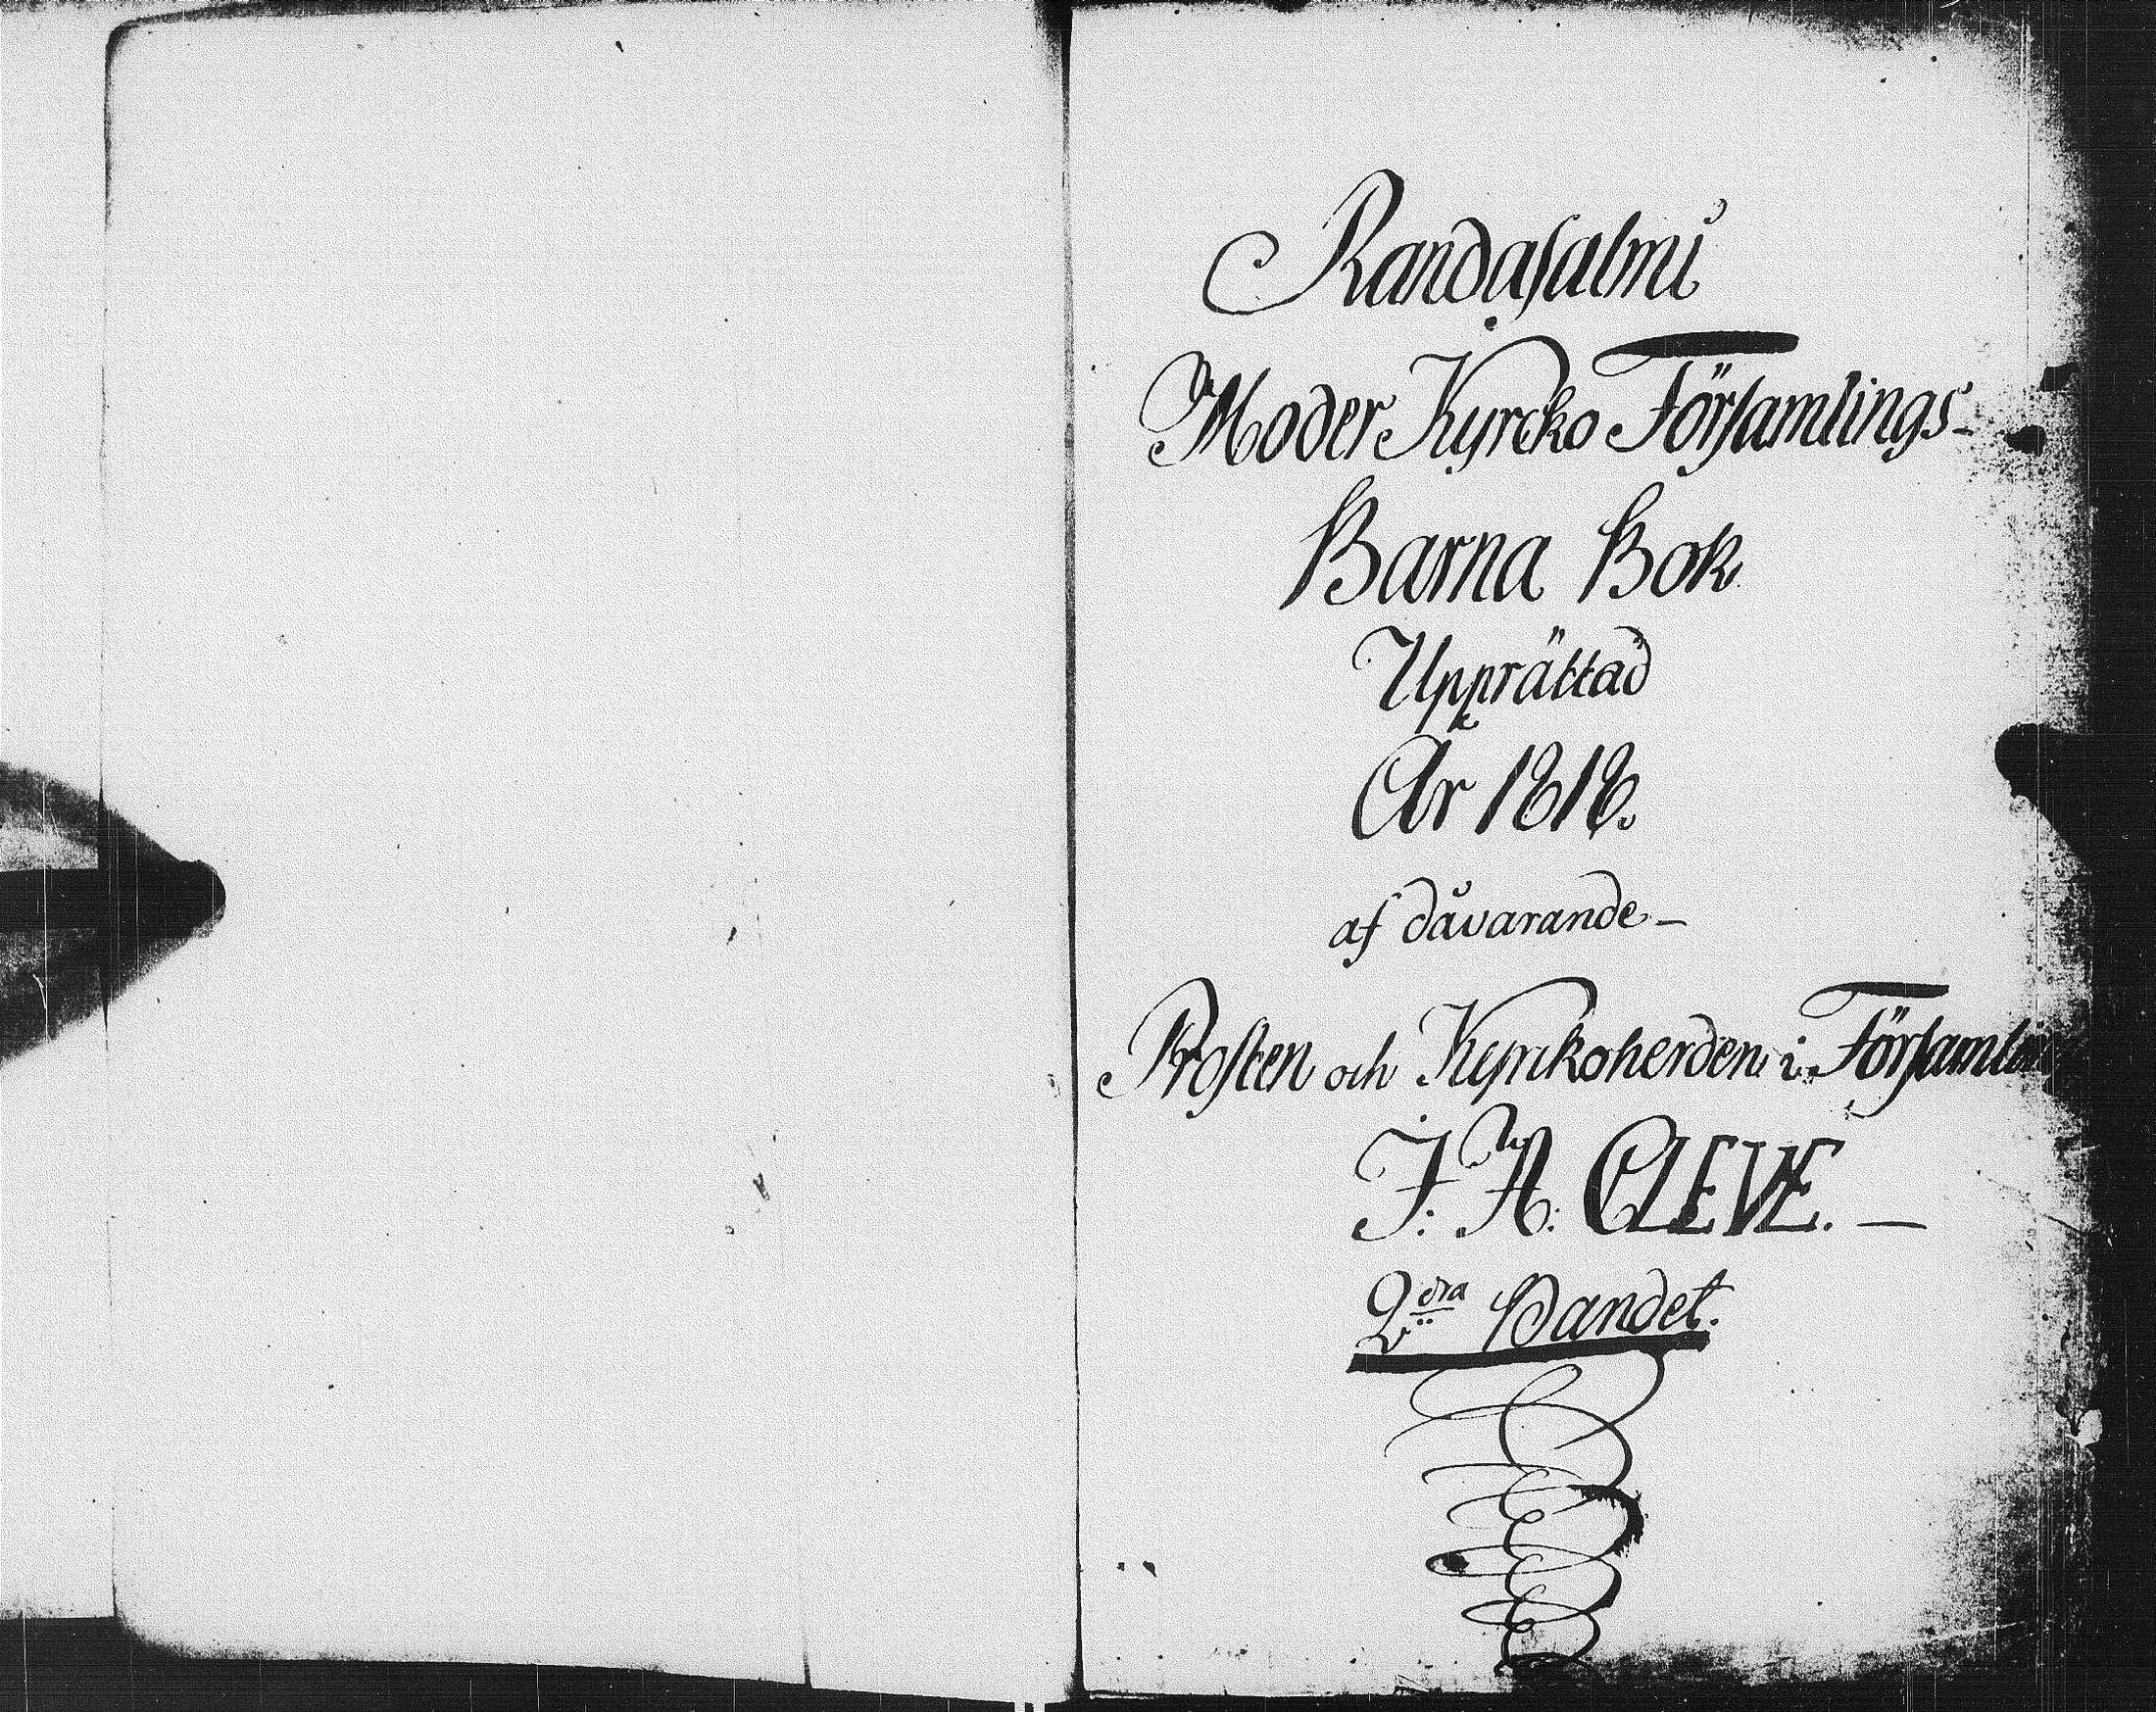 Randasalmi
Moder Kyrcko Församlings-
Barna Bok
Upprättad
År 1818.
af dåvarande-
Prosten och Kyrckoherden i
J: A: CLEVE. —
2dra Bandet.